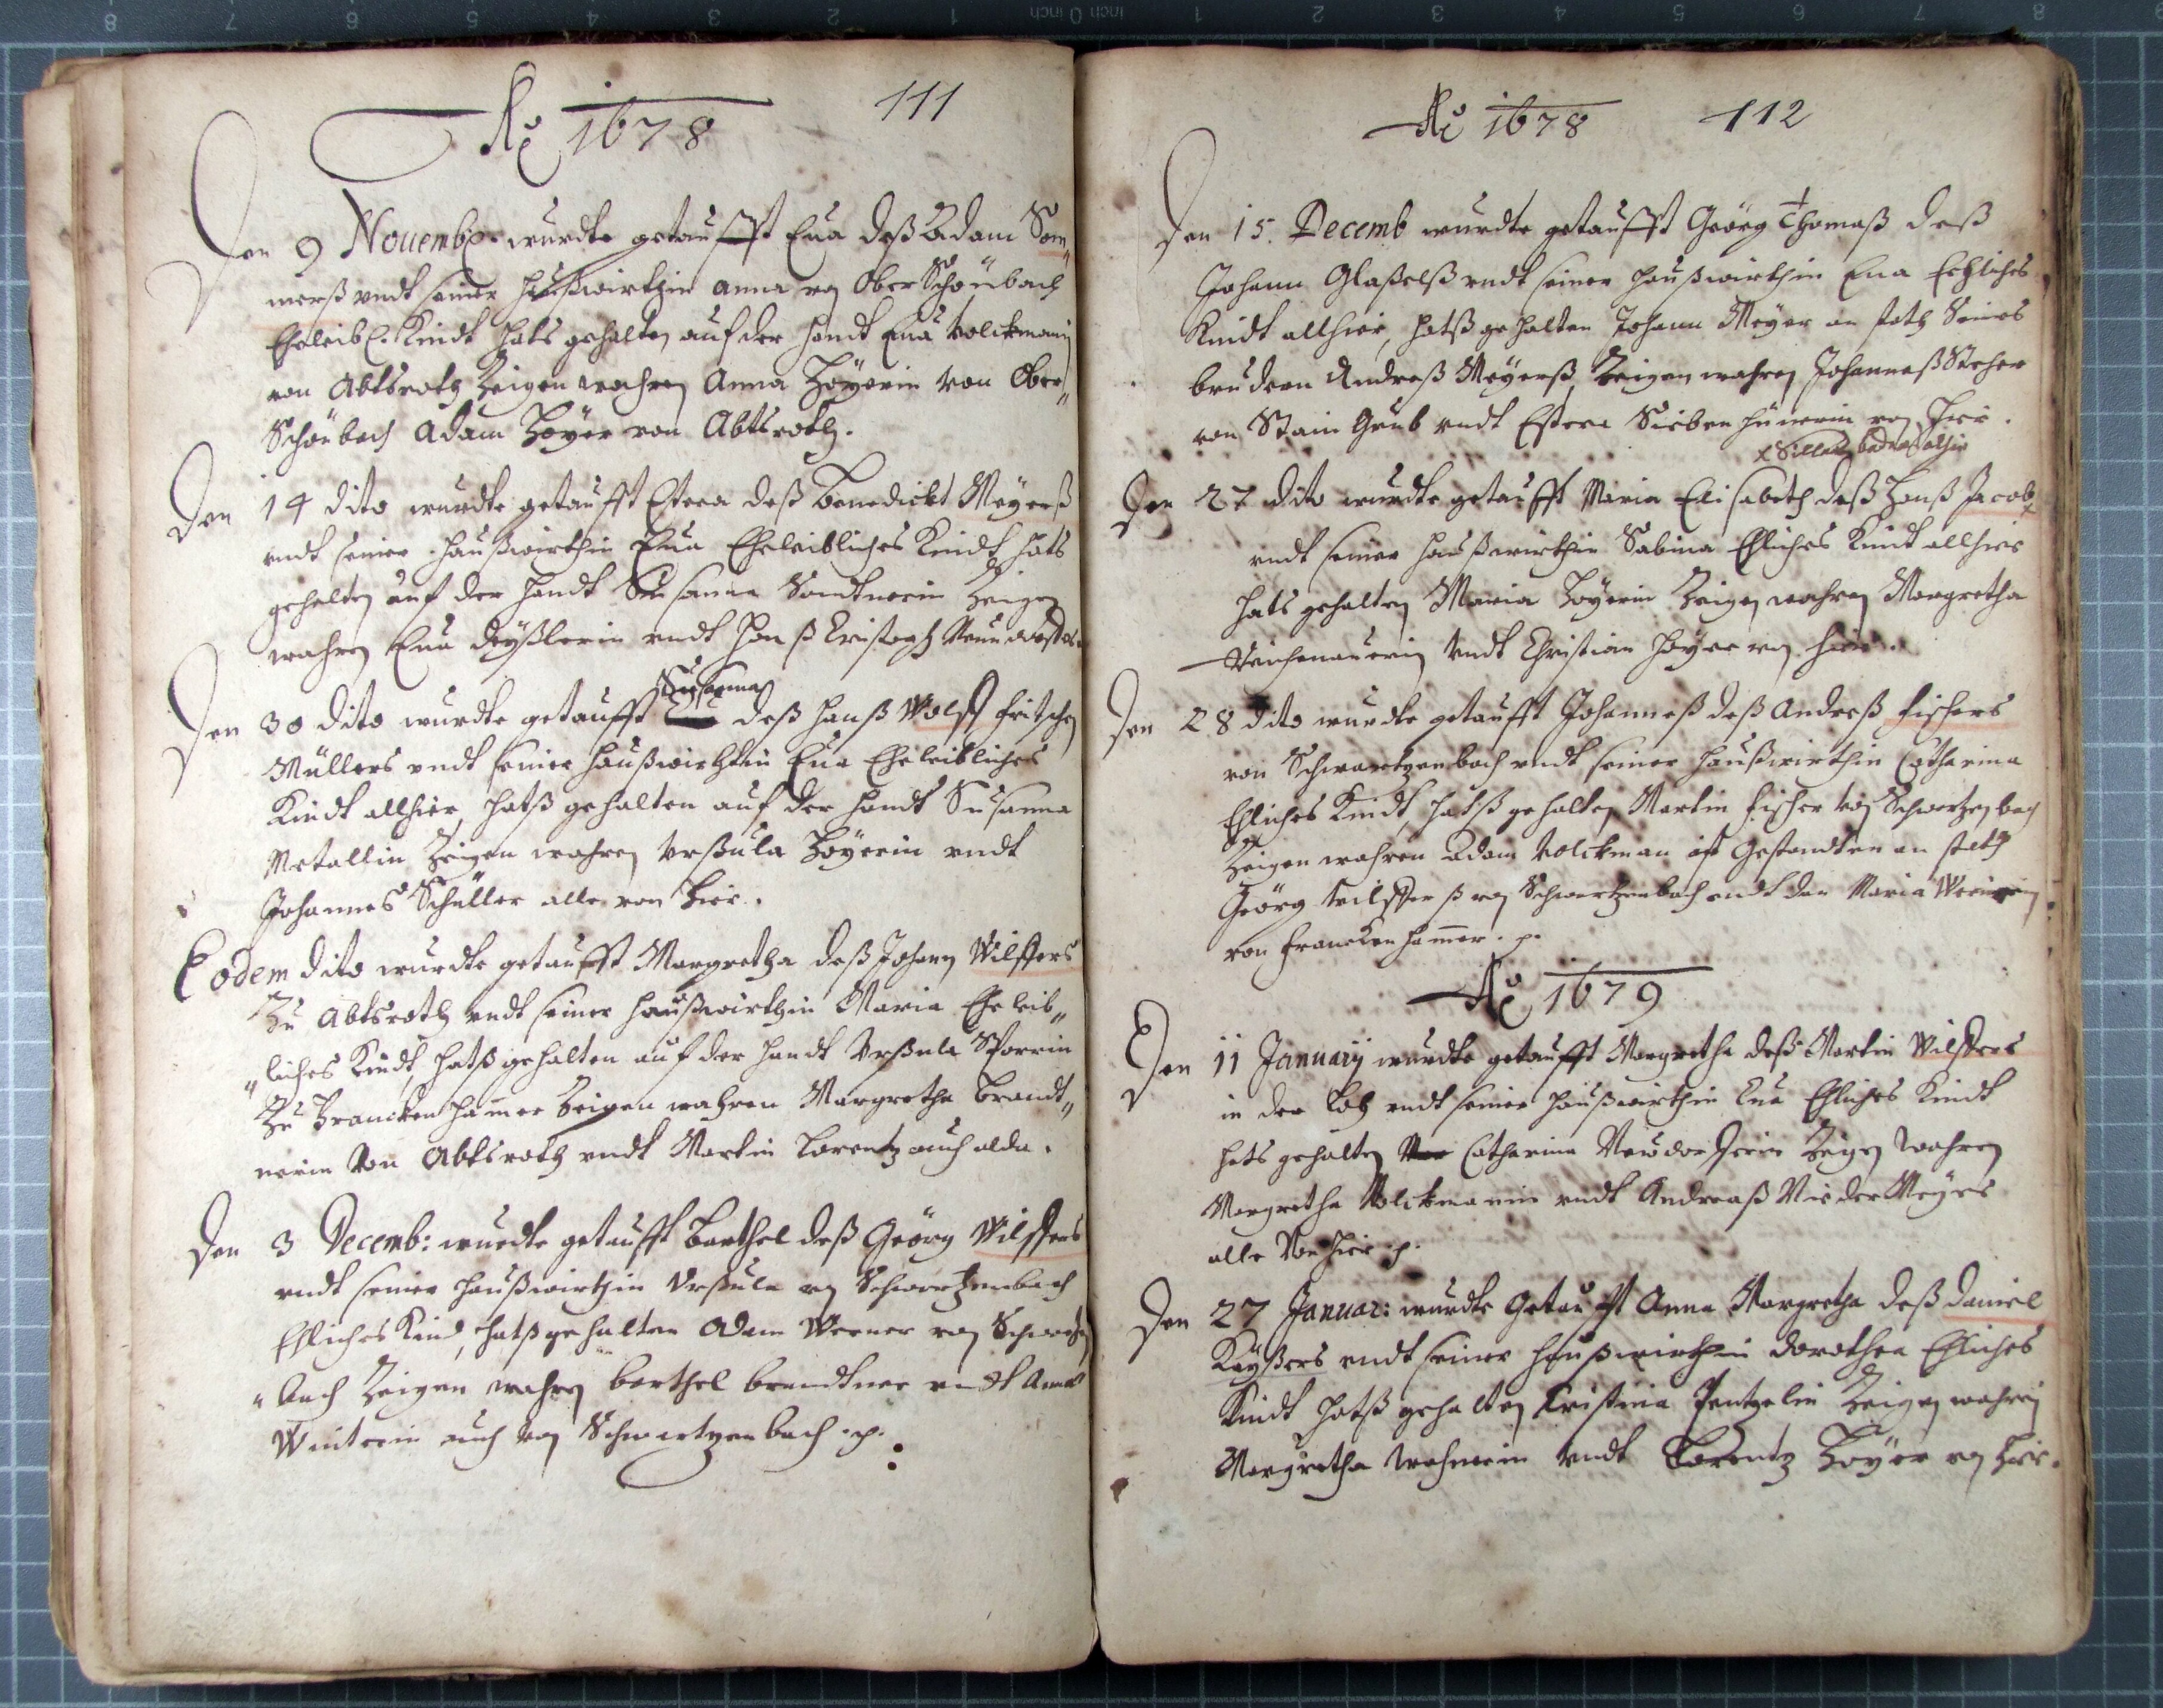 Aõ 1678
111
Den 9 Nouembr. wurdte getaufft Eua deß Adam Som„
merß vndt seiner Haußwirthin Anna vo Ober Schönbach
Eheleibl. Kindt hats gehalten auf der Handt Eua Volckmanin
von Abtsroth Zeigen wahren Anna Höyerin von Ober„
Schönbach Adam Höyer von Abtsroth.
Den 14 dito wurdte getaufft Estera deß Benedickt Meyerß
vndt seiner Haußwirthin Eua Eheleibliches Kindt hats
gehalten auf der Handt Susanna Zeigen
wahren Eua vndt Hanß Cristoph
Susanna
Den 30 dito wurdte getaufft deß Hanß Wolff fritschen
Müllers vndt seiner Haußwirthin Eua Eheleibliches
Kindt allhier, hatß gehalten auf der Handt Susanna
Metallin Zeigen wahren Vrßula Höyerin vndt
Johannes Schüller alle von hier.
Eodem dito wurdte getaufft Margretha deß Johann Wilfferts
Zu Abtsroth vndt seiner Haußwirthin Maria Eheleib„
„liches Kindt, hatß gehalten auf der Handt Vrßula
Zu Franckenhamer Zeigen wahren Margretha Brandt„
nerin von Abtsroth vndt Martin Lorentz auch alda.
Den 3 Decemb: wurdte getaufft Barthel deß Geörg Wilfferts
vndt seiner Haußwirthin Vrßula vo Schwartzenbach
Ehliches Kind, hatß gehalten Adam Werner vo Schwartzen
„bach Zeigen wahren Barthel Brandtner vndt Anna
Winterin auch vo Schwartzenbach .p.
Aõ 1678
112
Den 15. Decemb wurdte getaufft Geörg Thomaß deß
Johann Glaßelß vndt seiner Haußwirthin Eua Ehliches
Kindt allhier, hatß gehalten Johann Meyer an stath Seines
Brudern Andreß Meyerß, Zeigen wahren Johanneß
von Stain Grub vndt Estera Siebenhünerin vo hier.
Den 27 dito wurdte getaufft Maria Elisabeth deß Hanß Jacob
vndt seiner Haußwirthin Sabina Ehliches Kindt allhier
hats gehalten Maria Höyerin Zeigen wahren Margretha
vndt Christian Höyer vo hier.
Den 28 dito wurdte getaufft Johanneß deß Andreß fischers
von Schwartzenbach vndt seiner Haußwirthin Catharina
Ehliches Kindt hatß gehalten Martin fischer vo Schwartzenbach
Zeigen wahren Adam Volckman ist Gestandten an stath
Geörg Wilfferß vo Schwartzenbach vndt der Maria
von Franckenhamer .p.
Aõ 1679
Den 11 January wurdte getaufft Margretha deß Martin Wilfferts
in der Loh vndt seiner Haußwirthin Eua Ehliches Kindt
hats gehalten Catharina Zeigen wahren
Margretha Volckmanin vndt Andreaß Nieder Meyer
alle von hier .p.
Den 27 Januar: wurdte Getaufft Anna Margretha deß Daniel
Kayßers vndt seiner Haußwirthin Dorothea Ehliches
Kindt hatß gehalten Cristina Zeigen wahren
Margretha vndt Lorentz Höyer vo hier.